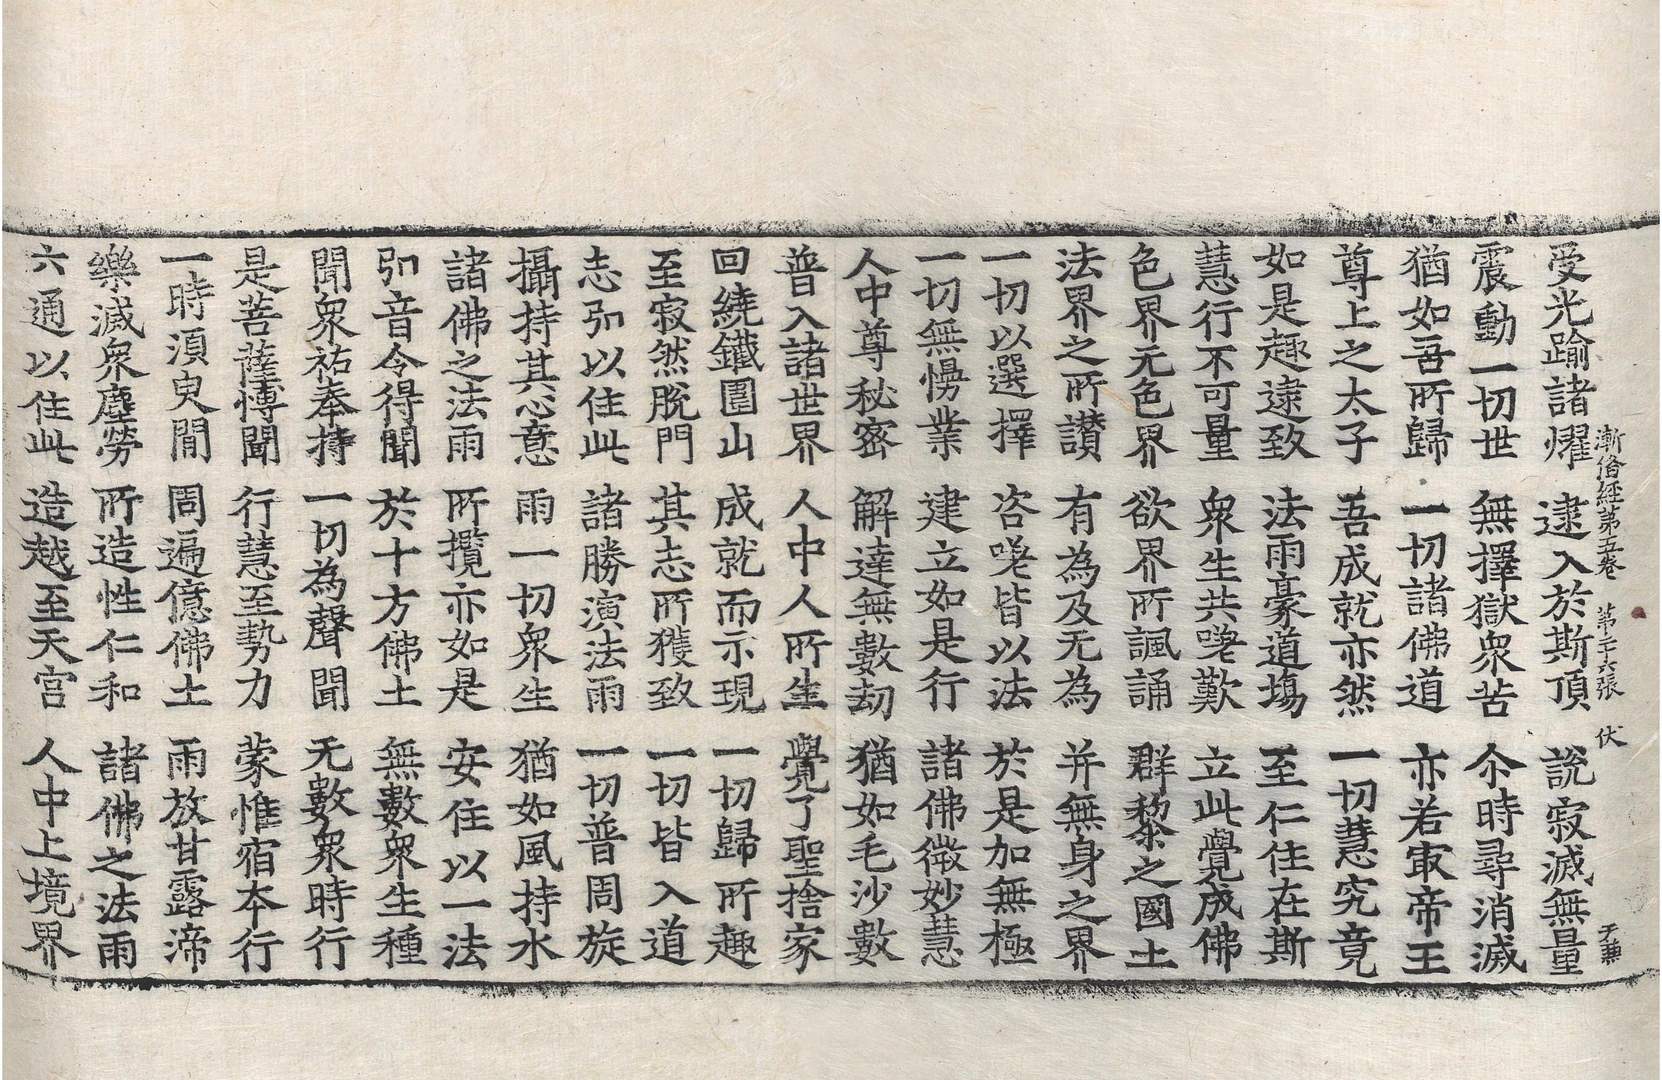 漸俻經第五卷 第二十六張 伏
受光踰諸燿 逮入於斯頂 說寂滅無量
震動一切世 無擇獄衆苦 尒時尋消滅
猶如吾所歸 一切諸佛道 亦若㝡帝王
尊上之太子 吾成就亦然 一切慧究竟
如是趣逮致 法雨豪道塲 至仁住在斯
慧行不可量 衆生共嗟歎 立此覺成佛
色界无色界 欲界所諷誦 群黎之國土
法界之所讃 有為及无為 并無身之界
一切以選擇 咨嗟皆以法 於是加無極
一切無懱業 建立如是行 諸佛微妙慧
人中尊秘密 解達無數劫 猶如毛沙數
普入諸世界 人中人所生 覺了聖捨家
回繞鐵圍山 成就而示現 一切歸所趣
至寂然脫門 其志所獲致 一切皆入道
志引以住此 諸勝演法雨 一切普周旋
攝持其心意 雨一切衆生 猶如風持水
諸佛之法雨 所攬亦如是 安住以一法
引音令得聞 於十方佛土 無數衆生種
聞衆祐奉持 一切為聲聞 无數衆時行
是菩薩博聞 行慧至勢力 蒙惟宿本行
一時湏臾閒 周遍億佛土 雨放甘露渧
樂滅衆塵勞 所造性仁和 諸佛之法雨
六通以住此 造越至天宮 人中上境界